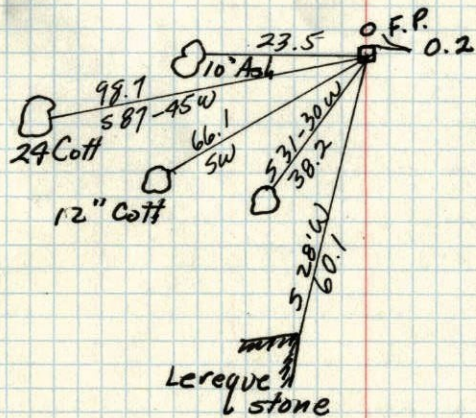 O F.P.
23.5
0.2
10" Ash
98.7
S 87-45W
24 Cott
66.1
SW
12" Cott
S 31-30W
38.2
S 28' W
60.1
Lereque
stone